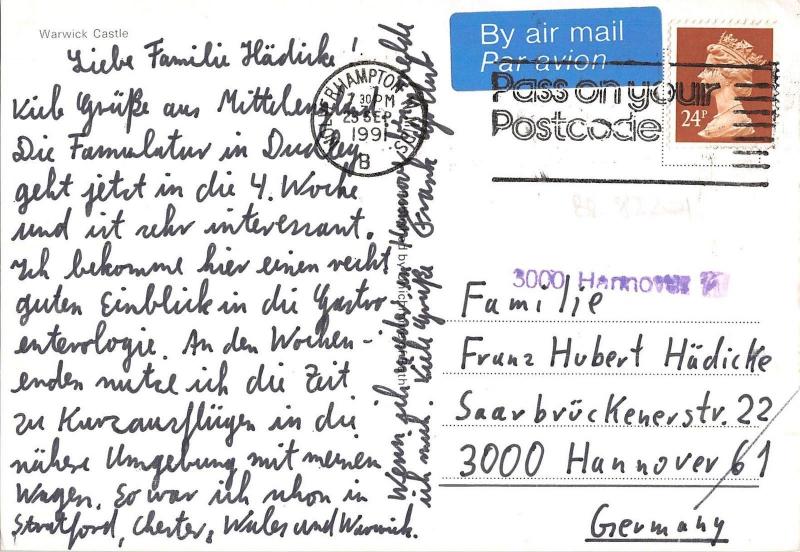 Warwick Castle
Liebe Familie Hädicke!
Viele Grüße aus Mittelengland.
Die Famulatur in Dudley
geht jetzt in die 4. Woche
und ist sehr interessant.
Ich bekomme hier einen recht
guten Einblick in die Gastro-
enterologie. An den Wochen-
enden nutze ich die Zeit
zu Kurzausflügen in die
nähere Umgebung mit meinem
Wagen. So war ich schon in
Stratford, Chester, Wales und Warwick.
Wenn ich wieder in Hannover bin, melde
ich mich. Viele Grüße Frank
By air mail
Par avion
WOLVERHAMPTON
7 30 PM
23 SEP
1991
B
Pass on your
Postcode
24P
3000 Hannover
Familie
Franz Hubert Hädicke
Saarbrückenerstr. 22
3000 Hannover 61
Germany